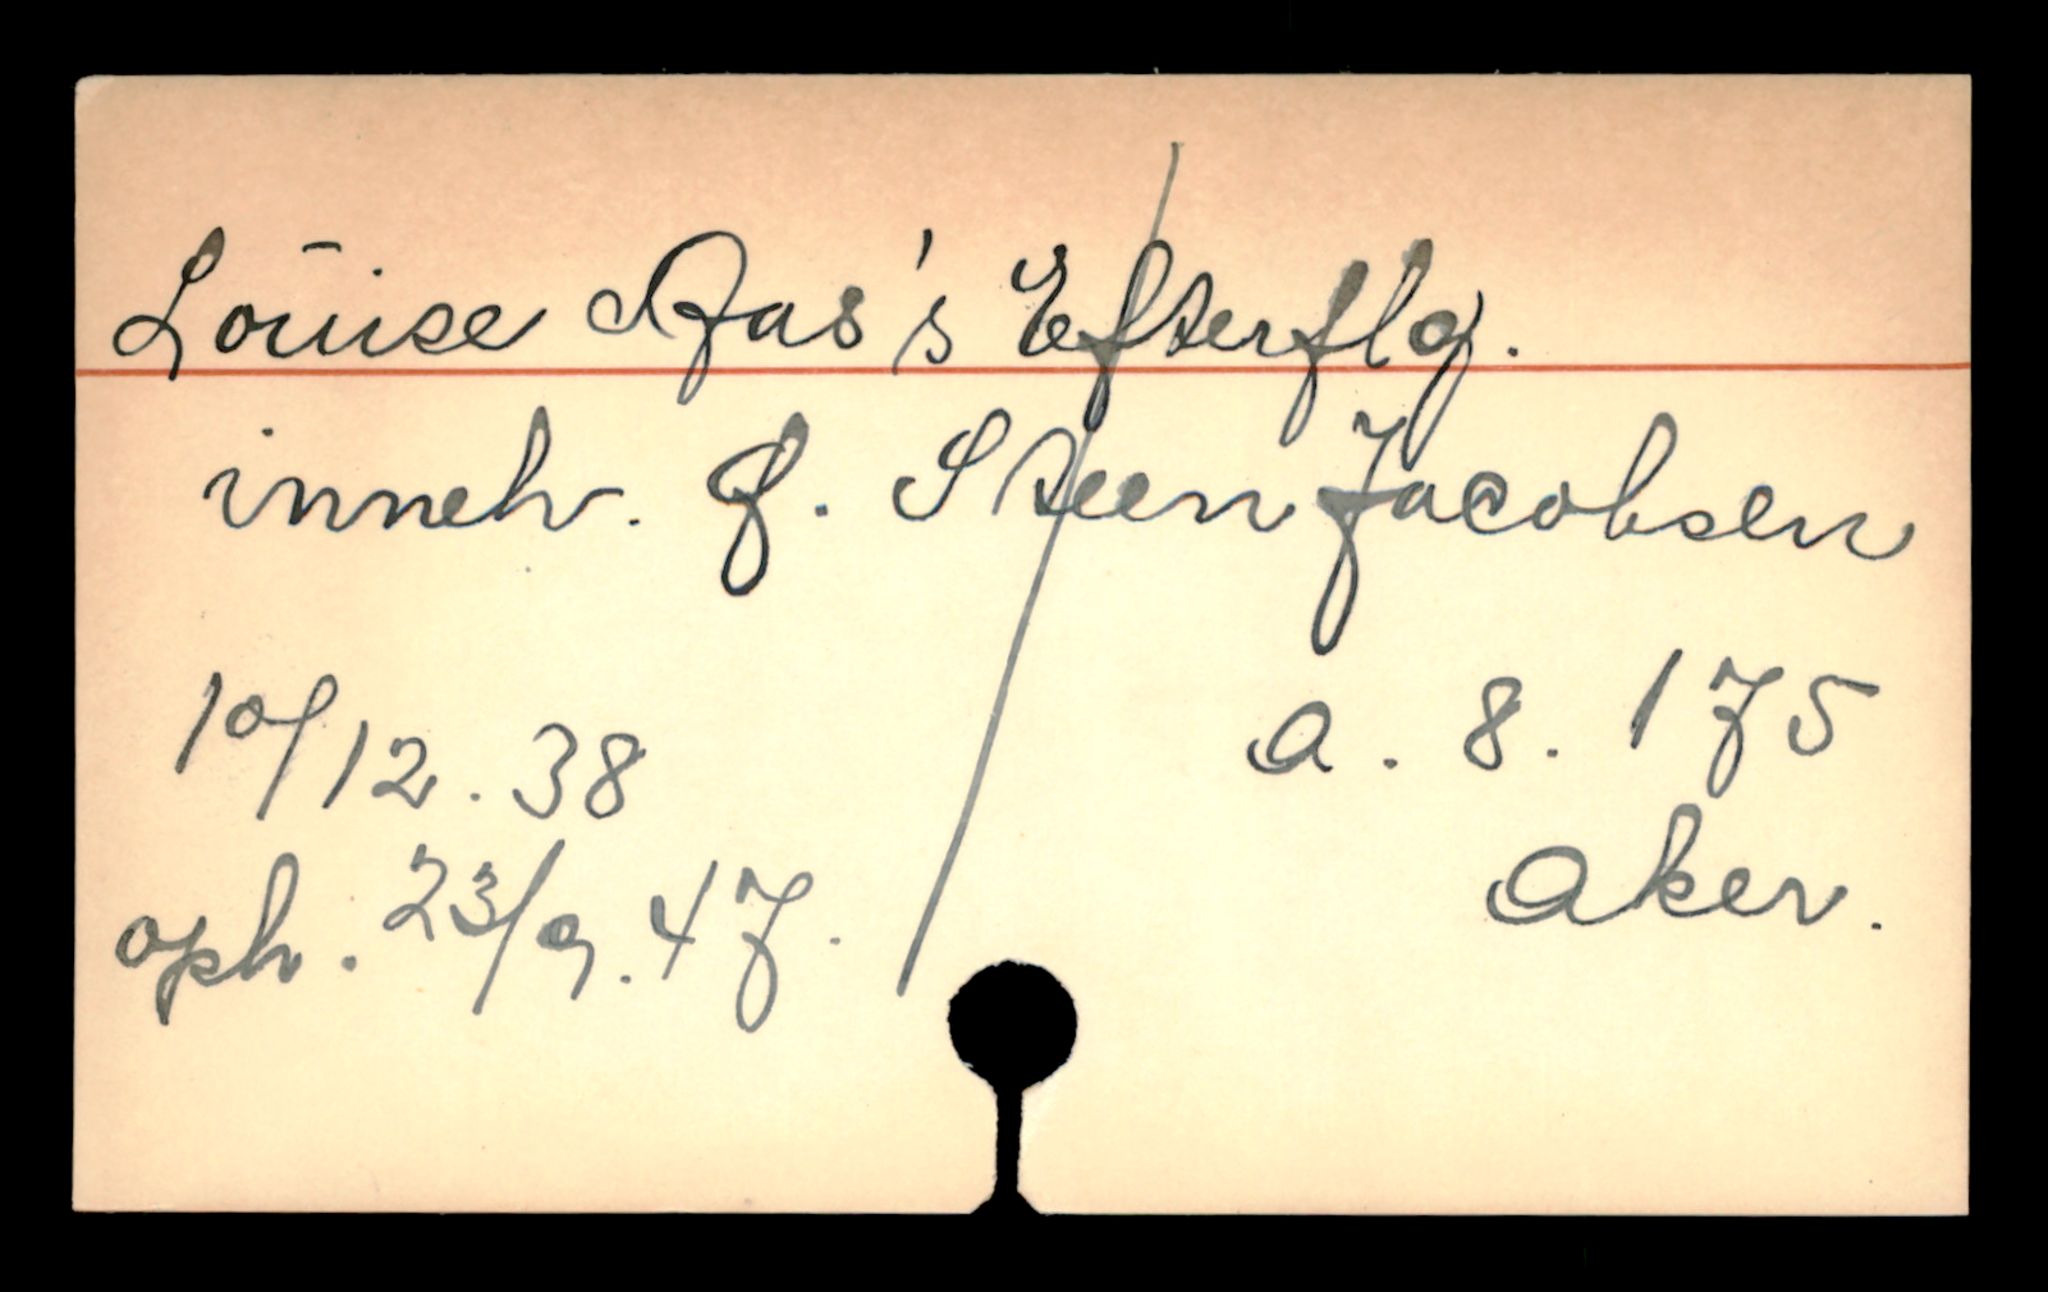 Louise Aas's Efterflg.
inneh. J. Steen Jacobsen
10/12.38 a. 8. 175
Aker.
oph. 23/9.47.